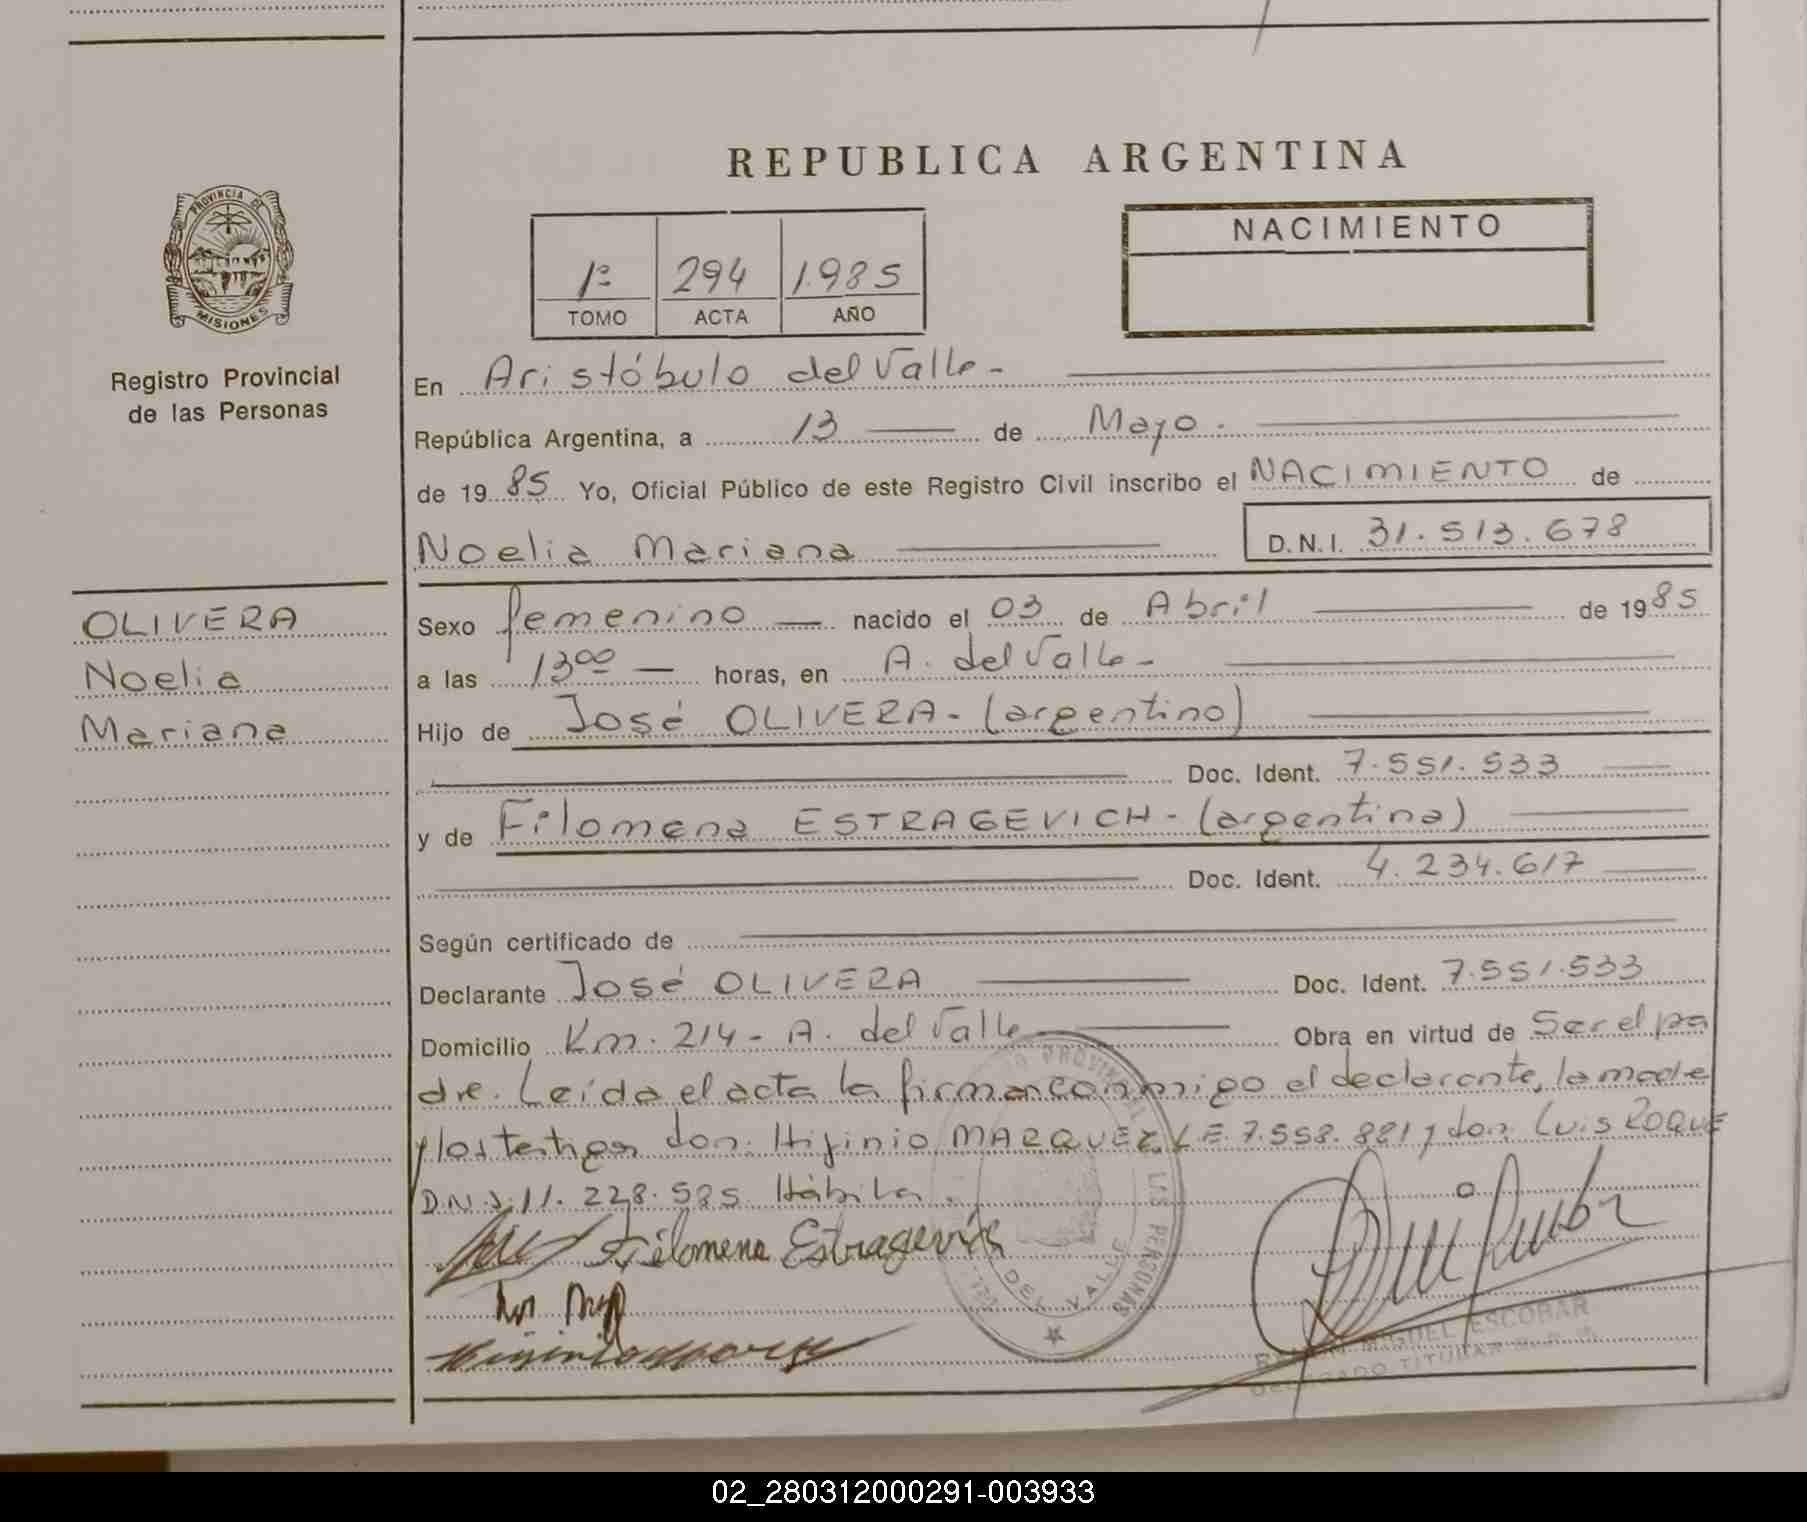 REPUBLICA ARGENTINA
PROVINCIA DE
MISIONES
Registro Provincial
de las Personas
1º 294 1.985
TOMO ACTA AÑO
NACIMIENTO
En Aristóbulo del Valle-
República Argentina, a 13 de Mayo.
de 19 85 Yo, Oficial Público de este Registro Civil inscribo el NACIMIENTO de
Noelia Mariana D.N.I. 31.513.678
OLIVERA
Noelia
Mariana
Sexo femenino nacido el 03 de Abril de 19 85
a las 13 00 horas, en A. del Valle-
Hijo de José OLIVERA- (argentino)
Doc. Ident. 7.551.533
y de Filomena ESTRAGEVICH- (argentina)
Doc. Ident. 4.234.617
Según certificado de
Declarante José OLIVERA Doc. Ident. 7.551.533
Domicilio Km. 214- A. del Valle Obra en virtud de Ser el pa
dre. Leída el acta la firman conmigo el declarante, la madre
y los testigos don. Hijinio MARQUEZ L.E. 7.558.881 y don Luis ROQUE
D.N.I. 11.228.585. Hábiles.
Filomena Estragevich
DEL VALLE
MIGUEL ESCOBAR
DELEGADO TITULAR
02_280312000291-003933